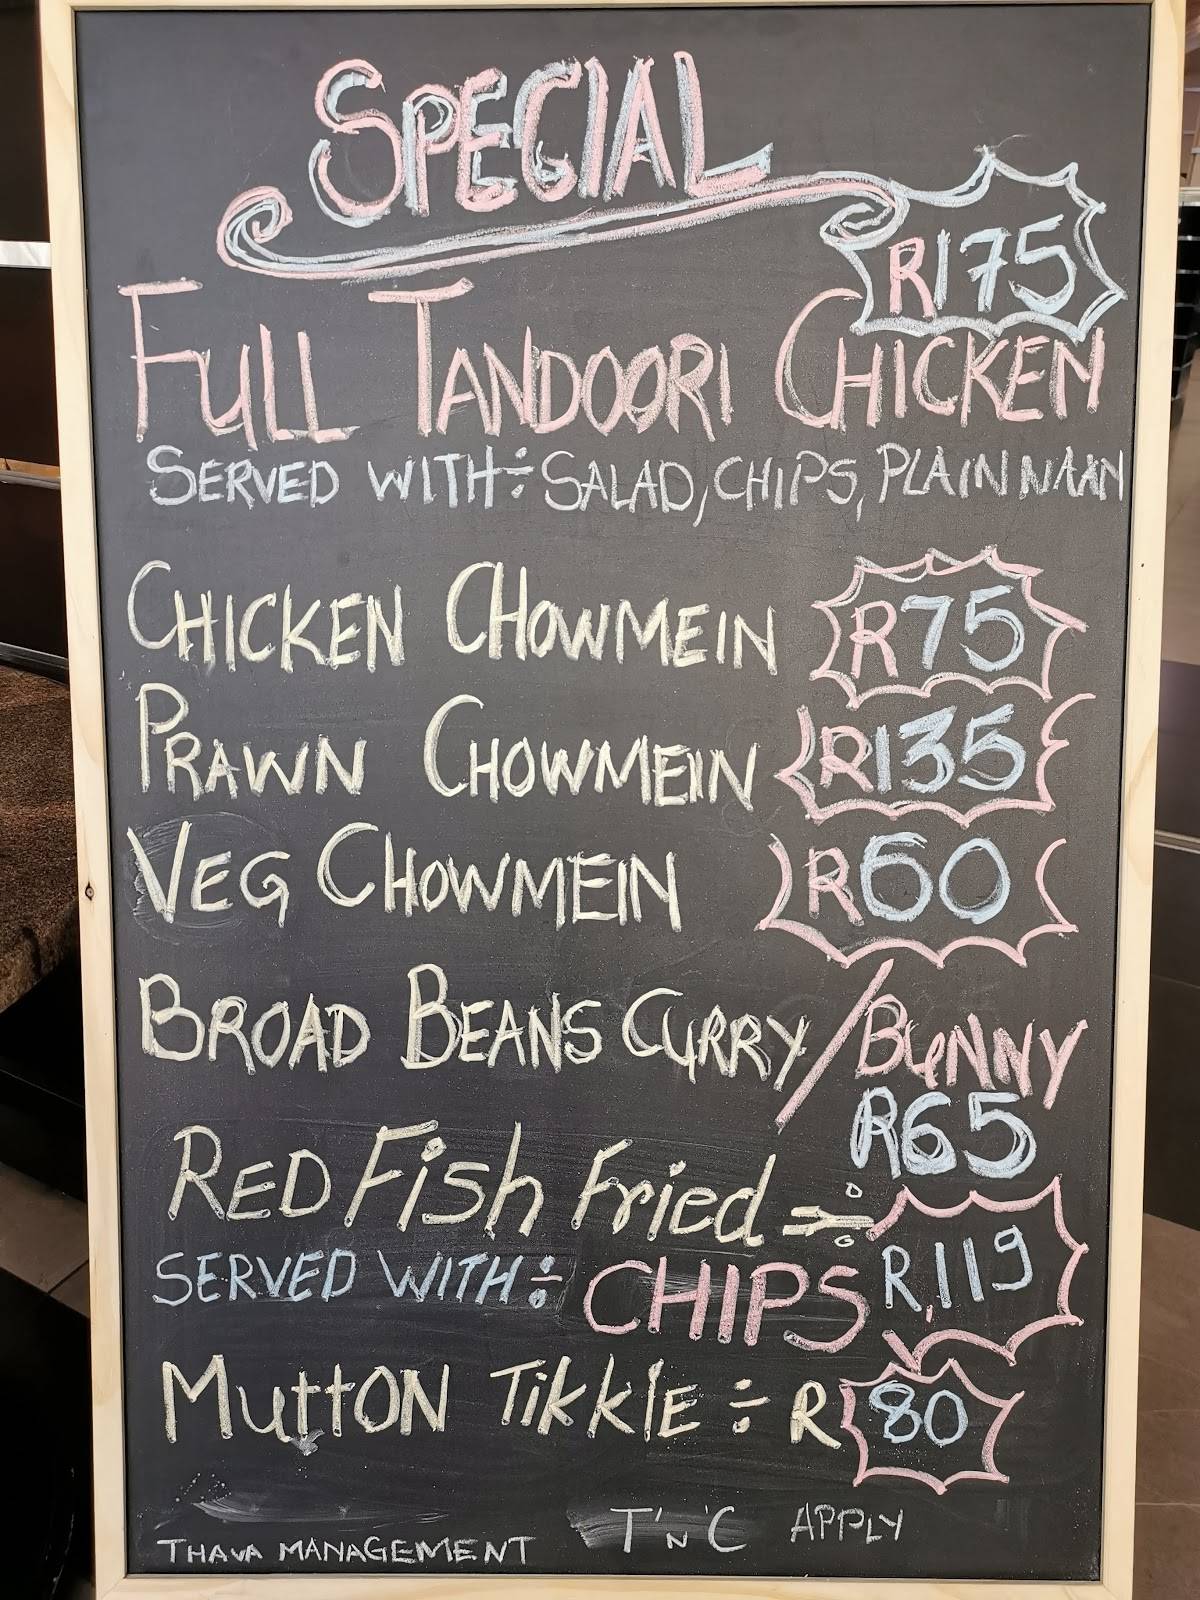 SPECIAL
R175
FULL TANDOORI CHICKEN
SERVED WITH÷ SALAD, CHIPS, PLAIN NAAN
CHICKEN CHOWMEIN R75
PRAWN CHOWMEIN R135
VEG CHOWMEIN R60
BROAD BEANS CURRY/BUNNY
R65
RED Fish Fried ÷
SERVED WITH÷ CHIPS R,119
MuttON TikkIE ÷ R80
T'n'C APPLY
THAVA MANAGEMENT